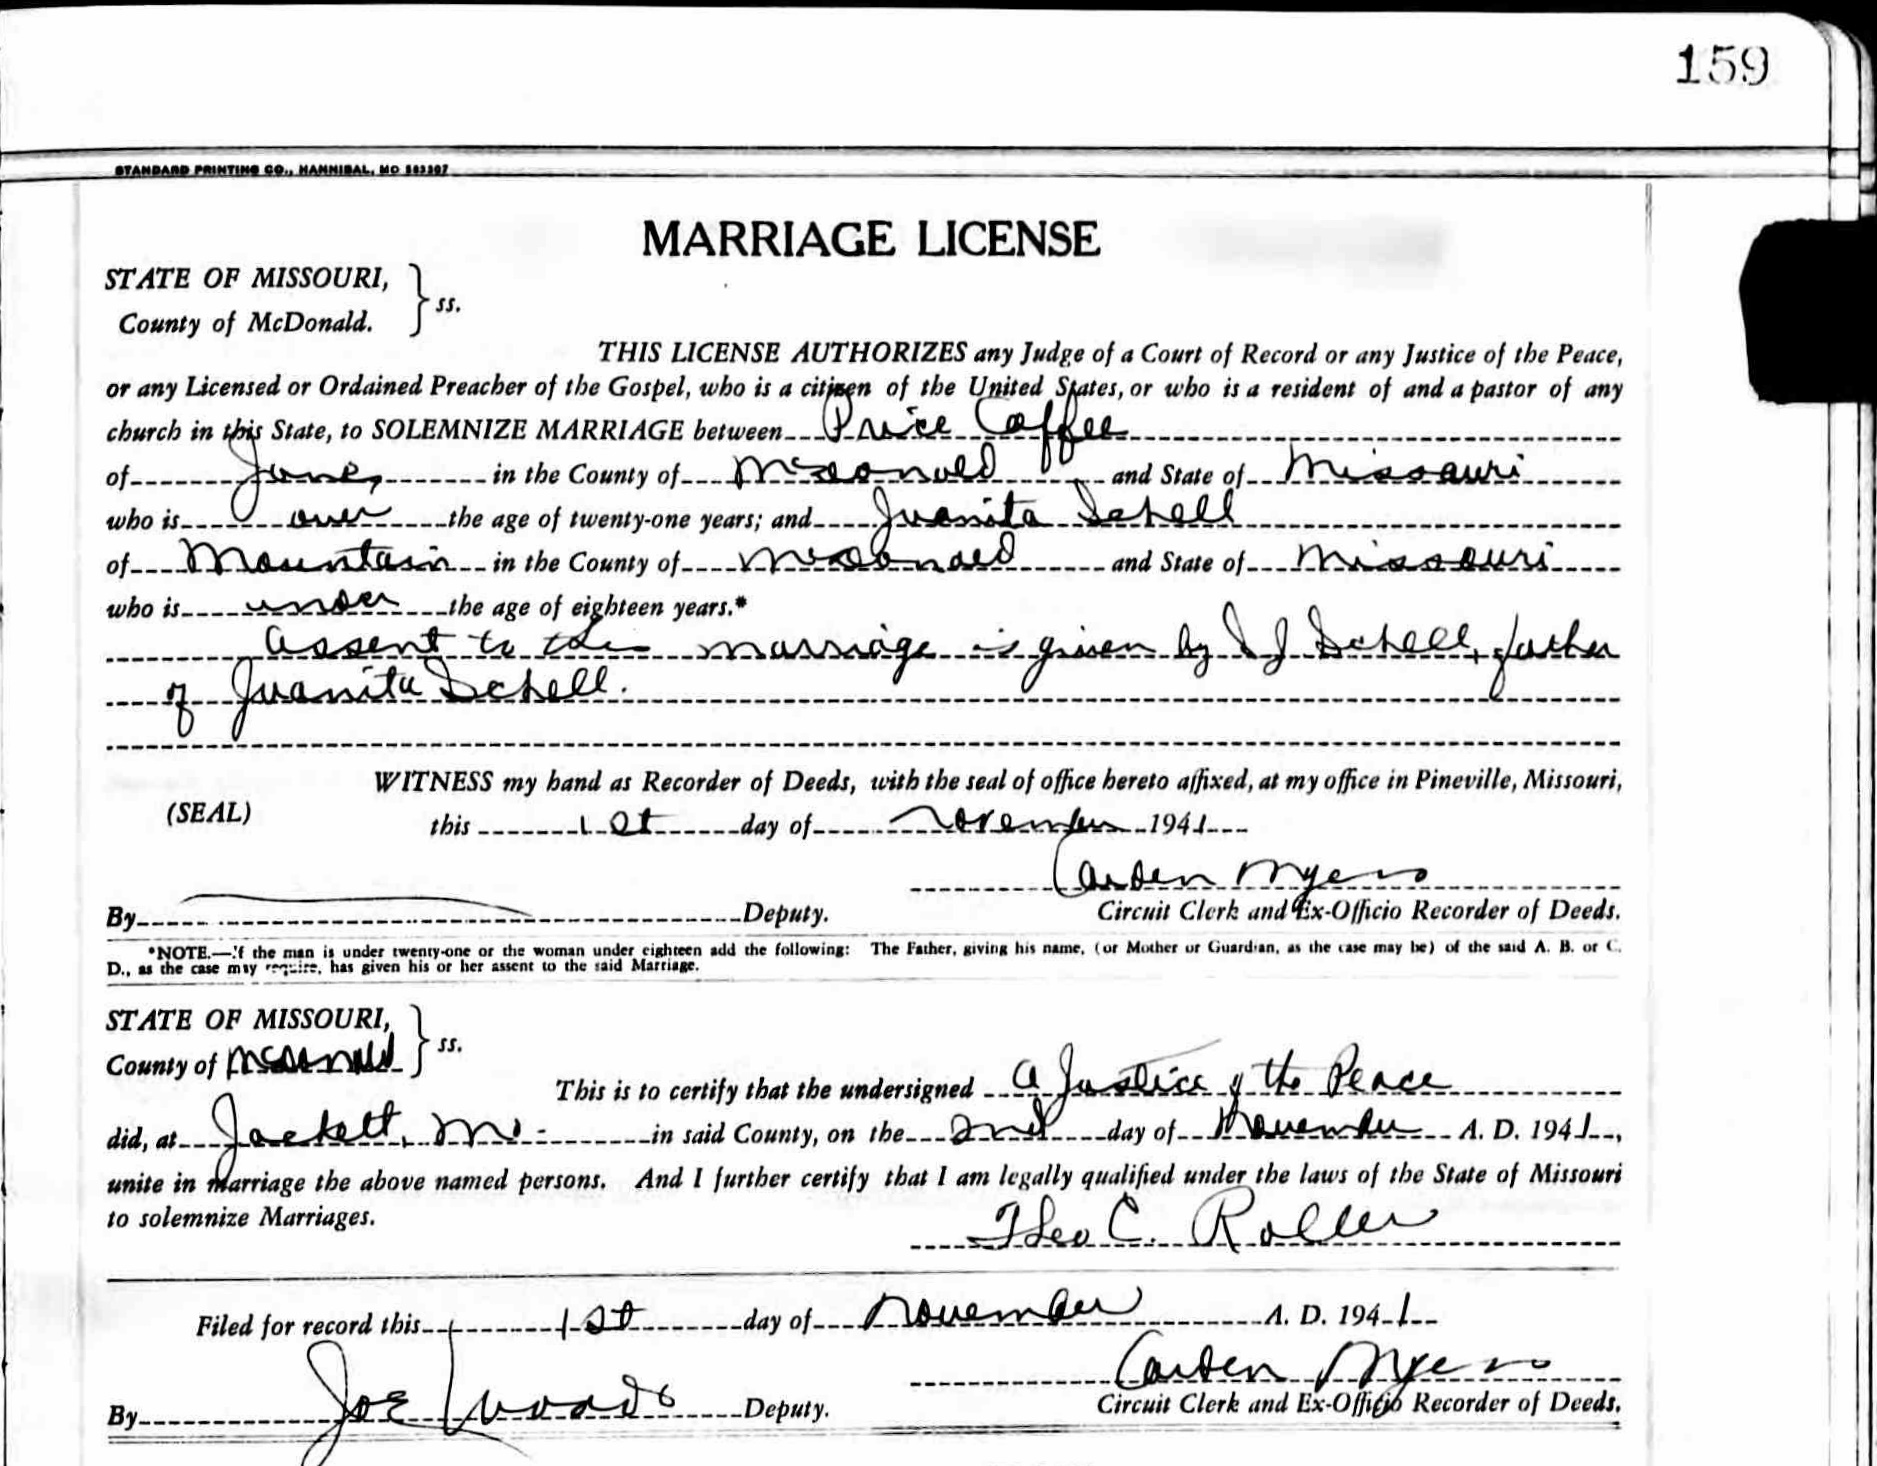 159
STANDARD PRINTING CO., HANNIBAL, MO
MARRIAGE LICENSE
STATE OF MISSOURI,
County of McDonald. } ss.
THIS LICENSE AUTHORIZES any Judge of a Court of Record or any Justice of the Peace,
or any Licensed or Ordained Preacher of the Gospel, who is a citizen of the United States, or who is a resident of and a pastor of any
church in this State, to SOLEMNIZE MARRIAGE between Price Coffee
of Jane, in the County of McDonald and State of Missouri
who is over the age of twenty-one years; and Juanita Schell
of Mountain in the County of McDonald and State of Missouri
who is under the age of eighteen years.*
Assent to the marriage is given by S J Schell, father
of Juanita Schell.
WITNESS my hand as Recorder of Deeds, with the seal of office hereto affixed, at my office in Pineville, Missouri,
(SEAL) this 1st day of November 1941
Carden Myers
By Deputy. Circuit Clerk and Ex-Officio Recorder of Deeds.
*NOTE.—If the man is under twenty-one or the woman under eighteen add the following: The Father, giving his name, (or Mother or Guardian, as the case may be) of the said A. B. or C.
D., as the case may require, has given his or her assent to the said Marriage.
STATE OF MISSOURI,
County of McDonald } ss.
This is to certify that the undersigned a Justice of the Peace
did, at Jackett, Mo. in said County, on the 2nd day of November A. D. 1941,
unite in Marriage the above named persons. And I further certify that I am legally qualified under the laws of the State of Missouri
to solemnize Marriages.
Theo C. Roller
Filed for record this 1st day of November A. D. 1941
Carden Myers
By Joe Woods Deputy. Circuit Clerk and Ex-Officio Recorder of Deeds.